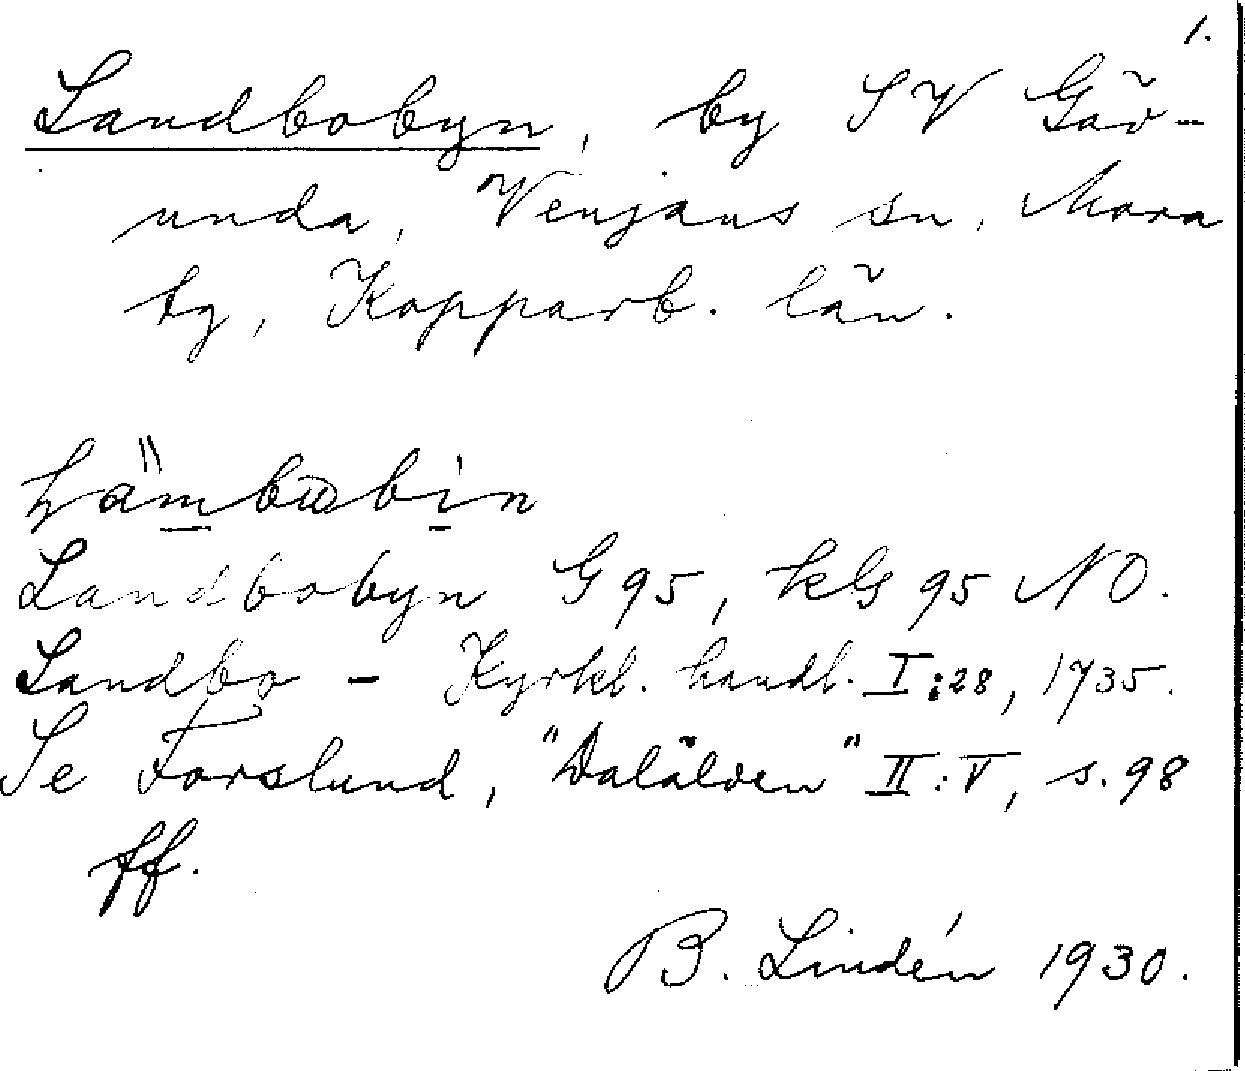 1.
Landbobyn, by SV Gäv-
unda, Venjans sn, Mora
tg, Kopparb. län.
Landbobyn G 95, kG 95 NO.
Landbo - Kyrkl. handl. I:28, 1735.
Se Forslund, "Dalälven" II:V, s. 98
ff.
B. Lindén 1930.